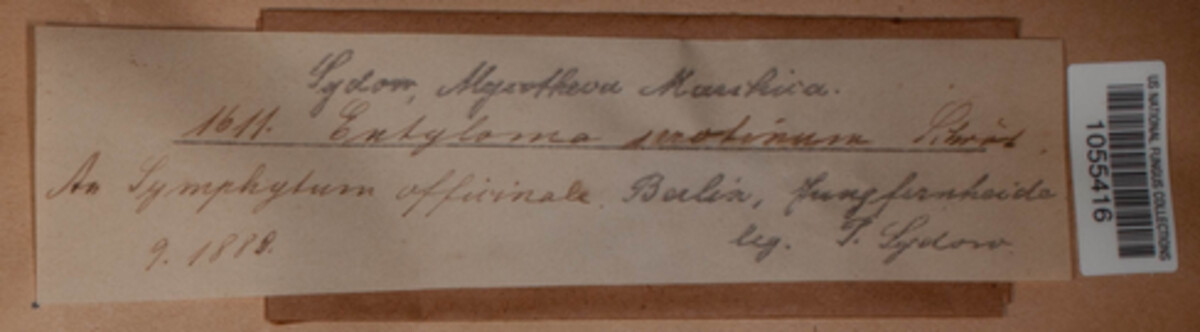 Sydow, Mycotheca Marchica.
1611. Entyloma serotinum Schröt.
An Symphytum officinale. Berlin, Jungfernheide
9. 1888.
leg. P. Sydow.
US NATIONAL FUNGUS COLLECTIONS
1055416